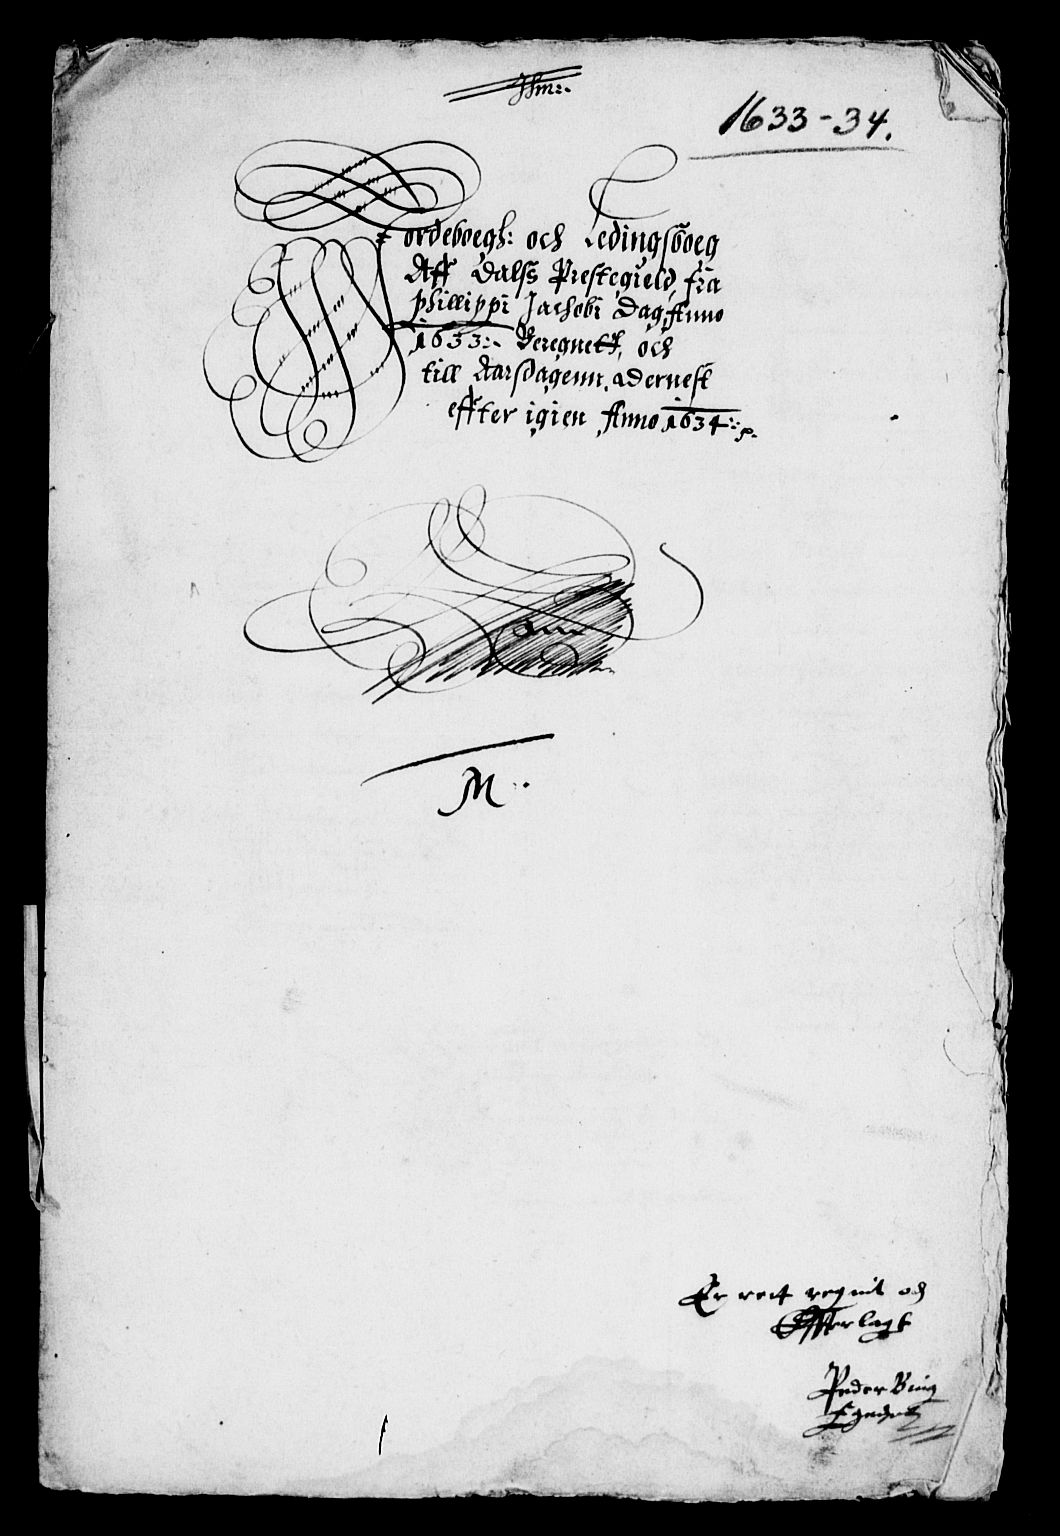 1633-34.
Jordeboegh: och Ledingsboeg
Aff Dalss Prestegield, fra
Phillippi Jachobi Dag, Anno
1633:- Beregnett, och
till Aarsdagenn, adernest
effter igien Anno 1634:
M:
Er rett regnit och
Offuerlagt
Peder Bing
Egenhndt